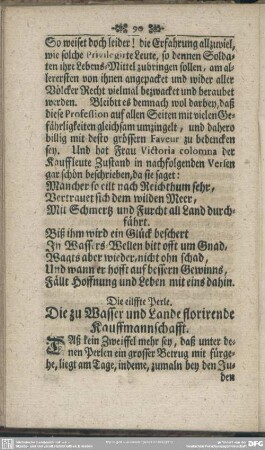 90
So weiset doch leider! die Erfahrung allzuviel,
wie solche Privilegirte Leute, so dennen Solda-
ten ihre Lebens-Mittel zubringen sollen, am al-
lerersten von ihnen angepacket und wider aller
Völcker Recht vielmal bezwacket und beraubet
werden. Bleibt es demnach wol darbey, daß
diese Profession auf allen Seiten mit vielen Ge-
fährligkeiten gleichsam umzingelt, und dahero
billig mit desto grössern Faveur zu bedencken
sey. Und hat Frau Victoria colomna der
Kauffleute Zustand in nachfolgenden Versen
gar schön beschrieben, da sie saget:
Mancher so eilt nach Reichthum sehr,
Vertrauet sich dem wilden Meer,
Mit Schmertz und Furcht all Land durch-
fährt.
Biß ihm wird ein Glück beschert
Jn Wassers-Wellen bitt offt um Gnad,
Waagts aber wieder, nicht ohn schad,
Und wann er hofft auf bessern Gewinns,
Fällt Hoffnung und Leben mit eins dahin.
Die eilffte Perle.
Die zu Wasser und Lande florirende
Kauffmannschafft.
Daß kein Zweiffel mehr sey, daß unter de-
nen Perlen ein grosser Betrug mit fürge-
he, liegt am Tage, indeme, zumaln bey den Zu-
den